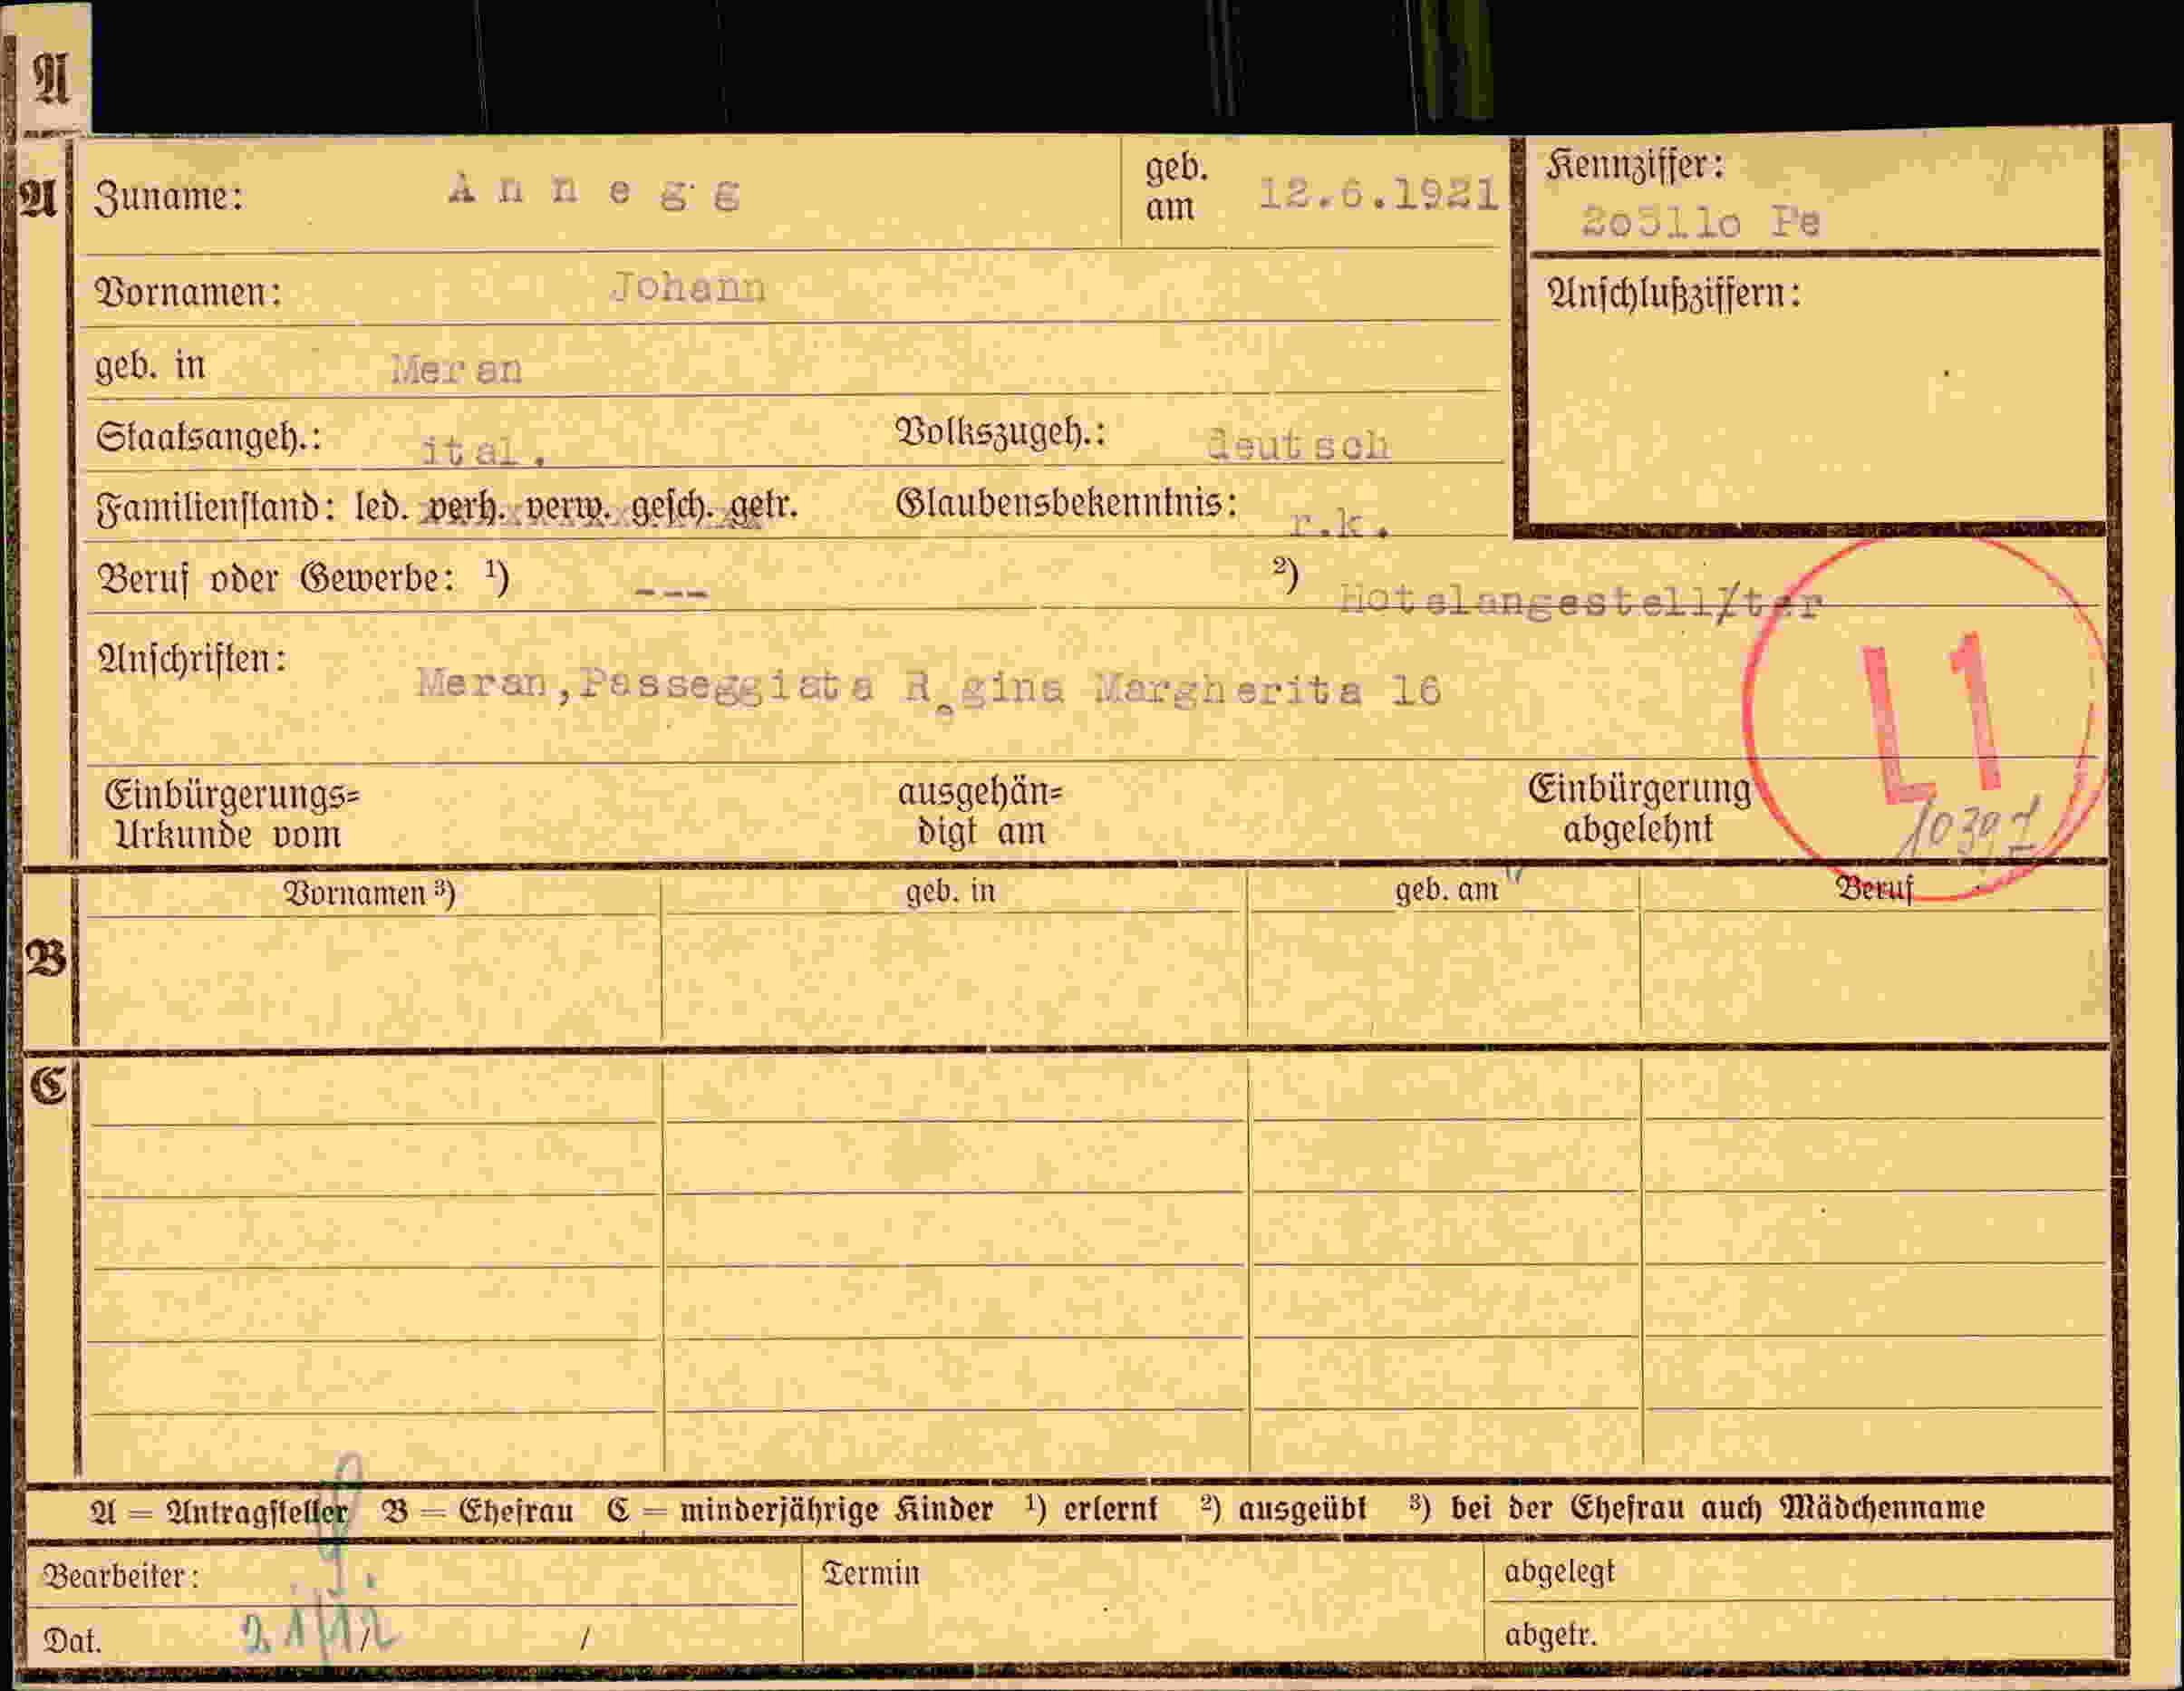 A
A
Zuname: Annegg geb. am 12.6.1921 Kennziffer:
2o511o Pe
Vornamen: Johann Anschlußziffern:
geb. in Meran
Staatsangeh.: ital. Volkszugeh.: deutsch
Familienstand: led. verh. verw. gesch. getr. Glaubensbekenntnis: r.k.
Beruf oder Gewerbe: 1) --- 2) Hotelangestell/ter
Anschriften: Meran,Passeggiata Regina Margherita 16
L1
Einbürgerungs= ausgehän= Einbürgerung
Urkunde vom digt am abgelehnt
10397
Vornamen 3) geb. in geb. am Beruf
B
C
A = Antragsteller B = Ehefrau C = minderjährige Kinder 1) erlernt 2) ausgeübt 3) bei der Ehefrau auch Mädchenname
Bearbeiter: Termin abgelegt
Dat. 21/12 / abgetr.